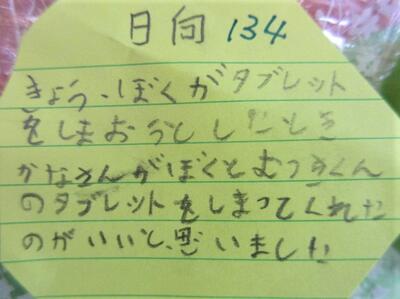 日向 134
きょう、ぼくがタブレット
をしまおうとしたとき
かなさんがぼくとむつきくん
のタブレットをしまってくれた
のがいいと、思いました